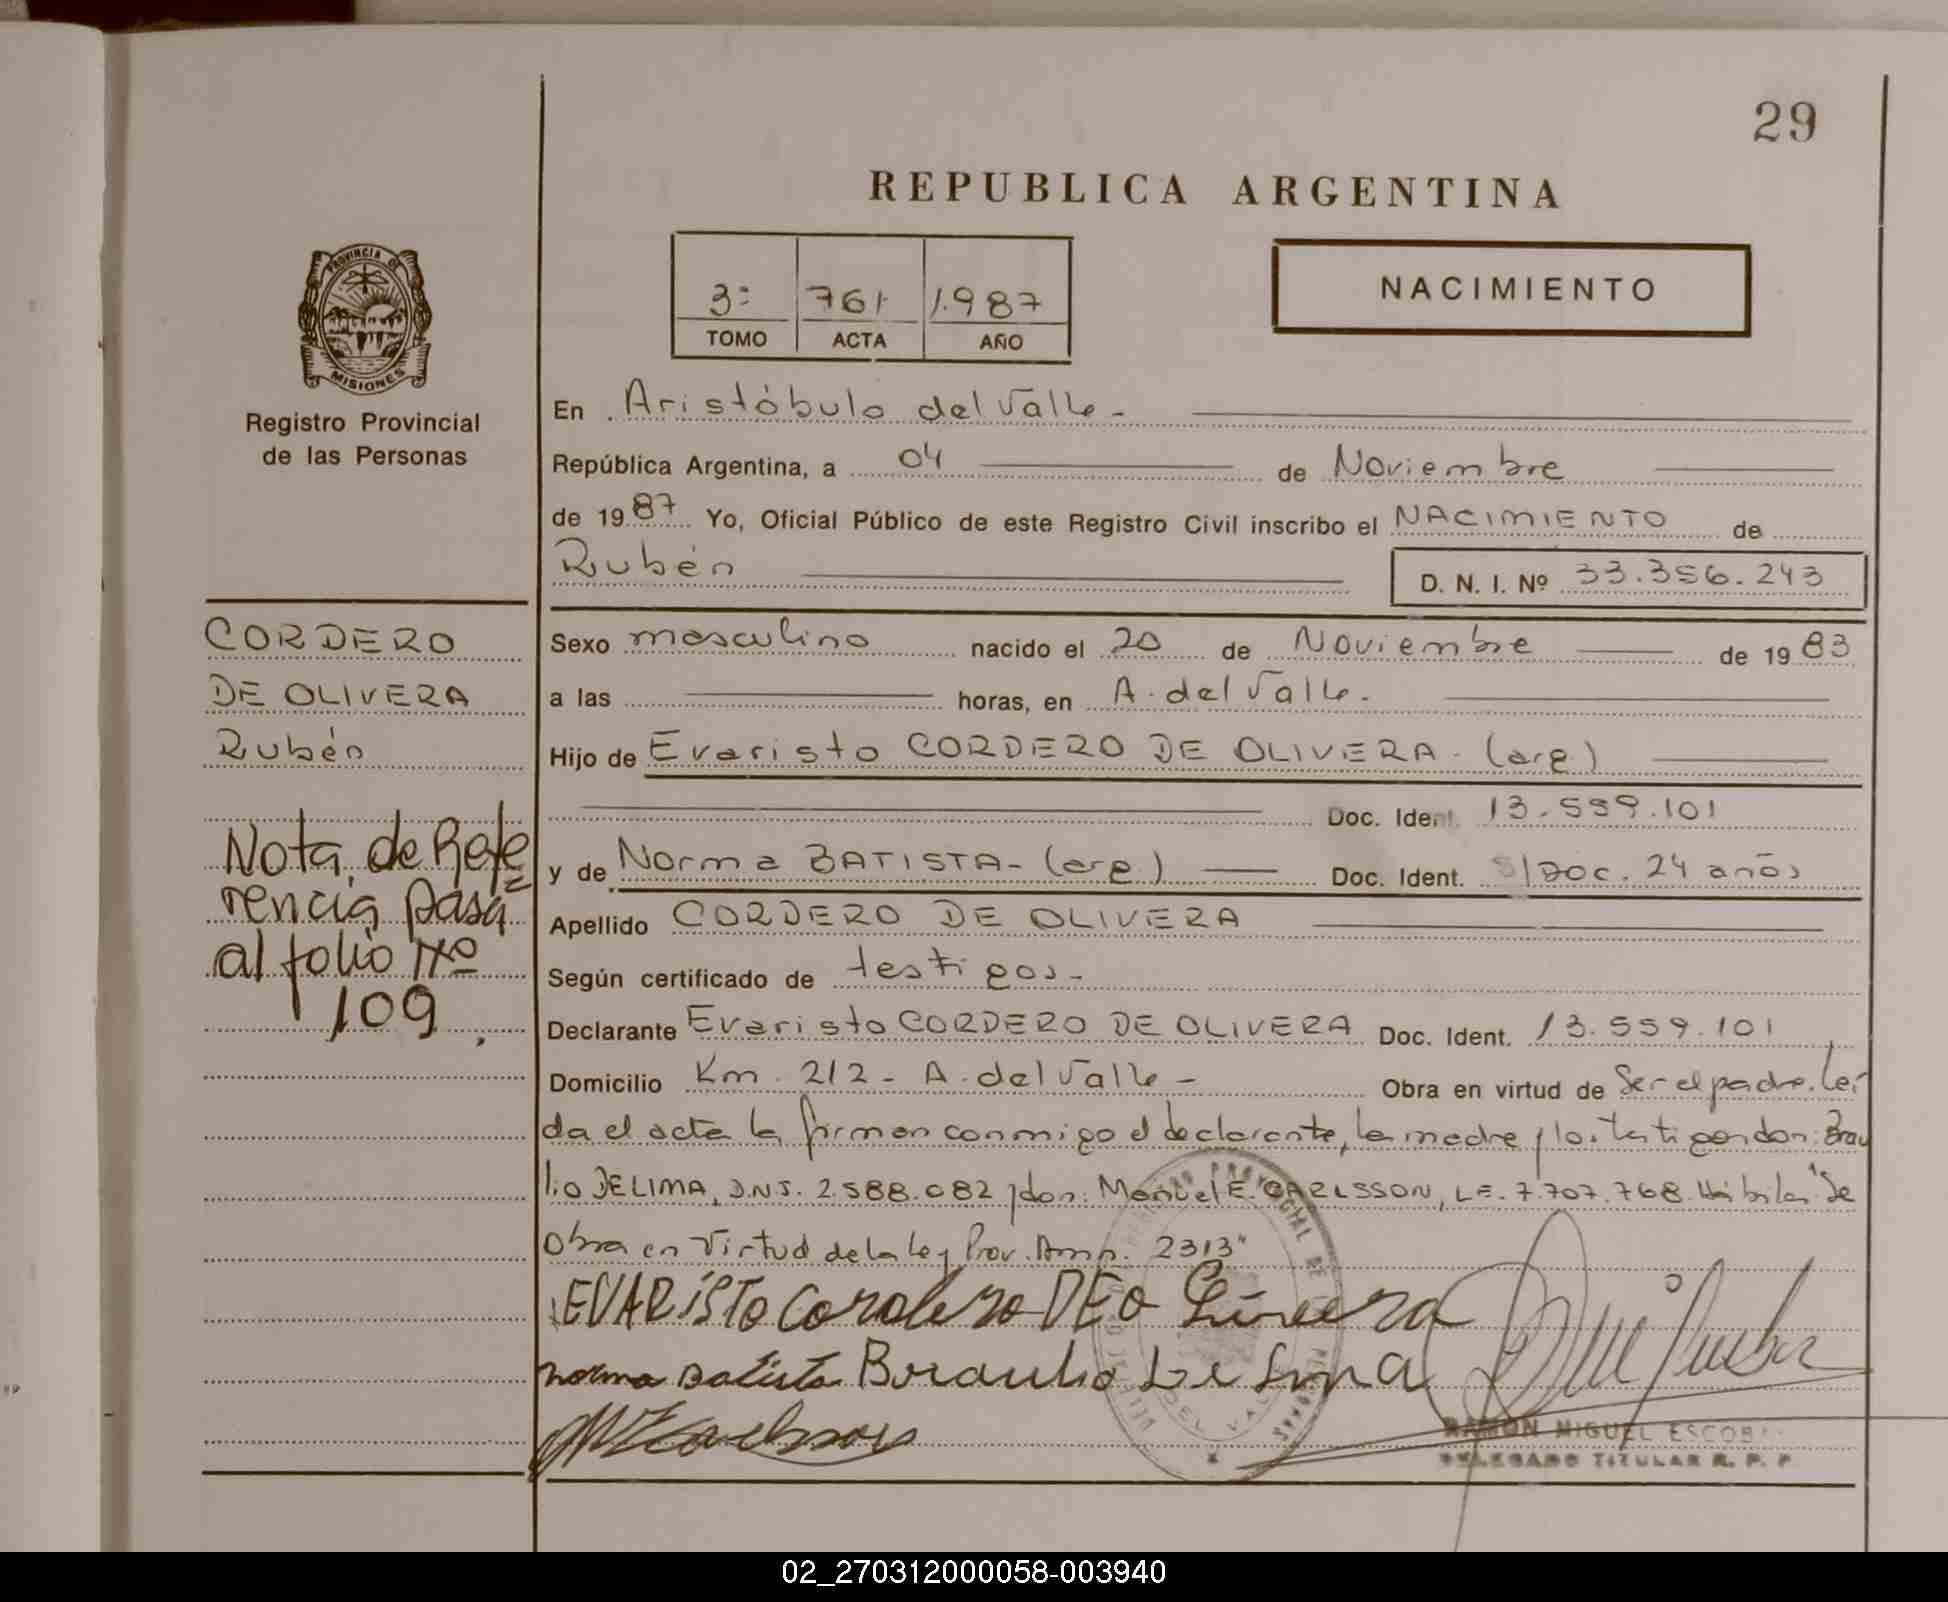 29
REPUBLICA ARGENTINA
3º 761 1.987
TOMO ACTA AÑO
NACIMIENTO
PROVINCIA DE
MISIONES
Registro Provincial
de las Personas
En Aristóbulo del Valle -
República Argentina, a 04 de Noviembre
de 1987 Yo, Oficial Público de este Registro Civil inscribo el NACIMIENTO de
Rubén D. N. I. Nº 33.356.243
CORDERO
DE OLIVERA
Rubén
Nota de Refe
rencia pasa
al folio Nº
109.
Sexo masculino nacido el 20 de Noviembre de 1983
a las horas, en A. del Valle.
Hijo de Evaristo CORDERO DE OLIVERA - (arg.)
Doc. Ident. 13.559.101
y de Norma BATISTA - (arg.) Doc. Ident. S/Doc. 24 años
Apellido CORDERO DE OLIVERA
Según certificado de testigos -
Declarante Evaristo CORDERO DE OLIVERA Doc. Ident. 13.559.101
Domicilio Km. 212 - A. del Valle - Obra en virtud de Ser el padre. Leí
da el acta la firman conmigo el declarante, la madre y los testigos don: Brau
lio DELIMA, D.N.I. 2.588.082 y don: Manuel E. CARLSSON, L.E. 7.707.768. "Se
Obra en Virtud de la Ley Prov. 2313"
EVARISTO Cordero DE O Livera
Norma BatistaBoraulio De Lima
RAMON MIGUEL ESCOB
DELEGADO TITULAR R. P. P.
02_270312000058-003940